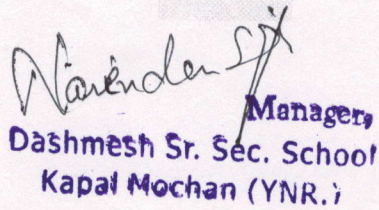 Narender Sgh
Manager,
Dashmesh Sr. Sec. School
Kapal Mochan (YNR.)